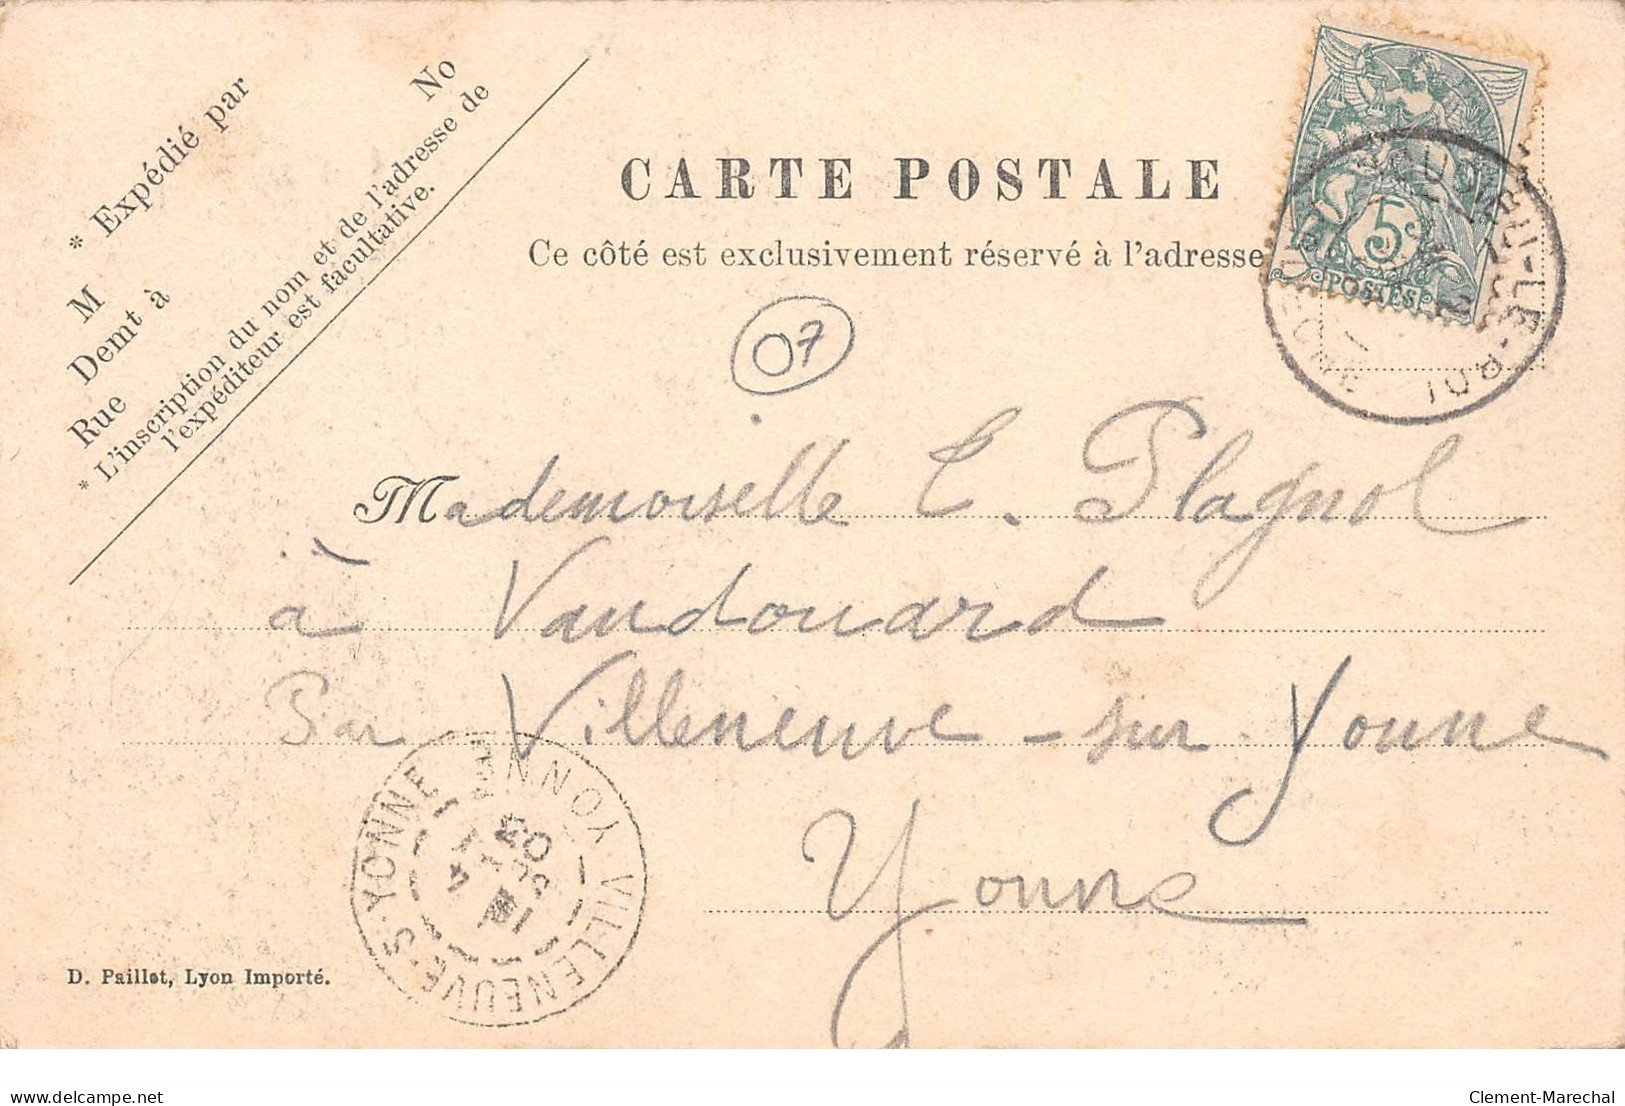 * Expédié par
M
No
Demt à
Rue
* L'inscription du nom et de l'adresse de
l'expéditeur est facultative.
CARTE POSTALE
Ce côté est exclusivement réservé à l'adresse
5c
POSTES
07
Mademoiselle E. Plagnol
à Vaudouard
Par Villeneuve-sur Yonne
Yonne
VILLENEUVE-S-YONNE
YONNE
03
D. Paillet, Lyon Importé.
www.delcampe.net
Clement-Marechal